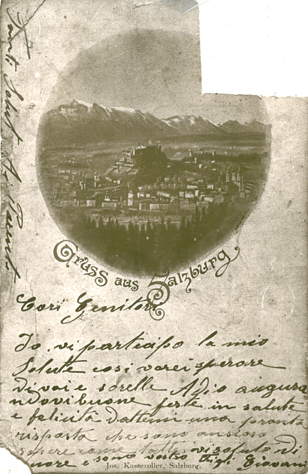 Tanti Saluti A Parenti
Gruss aus Salzburg
Cari Genitori
Io vi partiapo la mio
Salute cosi varei sperore
Di voi e sorelle Adio augura
ndovi buone feste in salute
e felicità dattemi una pronta
risposta che sono ansioso
sapere
sono vostro
Jos. Kastezoller, Salzburg